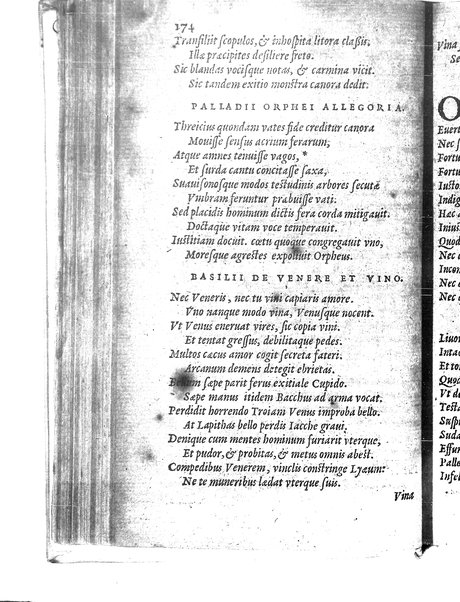 174
Transiliit scopulos, & inhospita litora classis,
Illæ præcipites desiliere freto.
Sic blandas vocisque notas, & carmina vicit.
Sic tandem exitio monstra canora dedit.
PALLADII ORPHEI ALLEGORIA.
Threicius quondam vates fide creditur canora
Mouisse sensus acrium ferarum;
Atque amnes tenuisse vagos, *
Et surda cantu concitasse saxa,
Suauisonosque modos testudinis arbores secutæ
Vmbram feruntur præbuisse vati.
Sed placidis hominum dictis fera corda mitigauit.
Doctaque vitam voce temperauit.
Iustitiam docuit. cœtu quoque congregauit vno,
Moresque agrestes expoliuit Orpheus.
BASILII DE VENERE ET VINO.
Nec Veneris, nec tu vini capiaris amore.
Vno nanque modo vina, Venusque nocent.
Vt Venus eneruat vires, sic copia vini.
Et tentat gressus, debilitatque pedes.
Multos cæcus amor cogit secreta fateri.
Arcanum demens detegit ebrietas.
Bellum sæpe parit ferus exitiale Cupido.
Sæpe manus itidem Bacchus ad arma vocat.
Perdidit horrendo Troiam Venus improba bello.
At Lapithas bello perdis Iacche graui.
Denique cum mentes hominum furiarit vterque,
Et pudor, & probitas, & metus omnis abest.
Compedibus Venerem, vinclis constringe Lyæum:
Ne te muneribus lædat vterque suis.
Vina
Vina
Se
O
Euert
Nec s
Fortu
Fortu
Iusto
Indig
Hæc
Iniu
Quod
Nec
Incon
Nec
Nec
Liuor
Intac
Et to
Quo
Vt d
Testa
Susp
Suda
Effun
Pallo
Infel